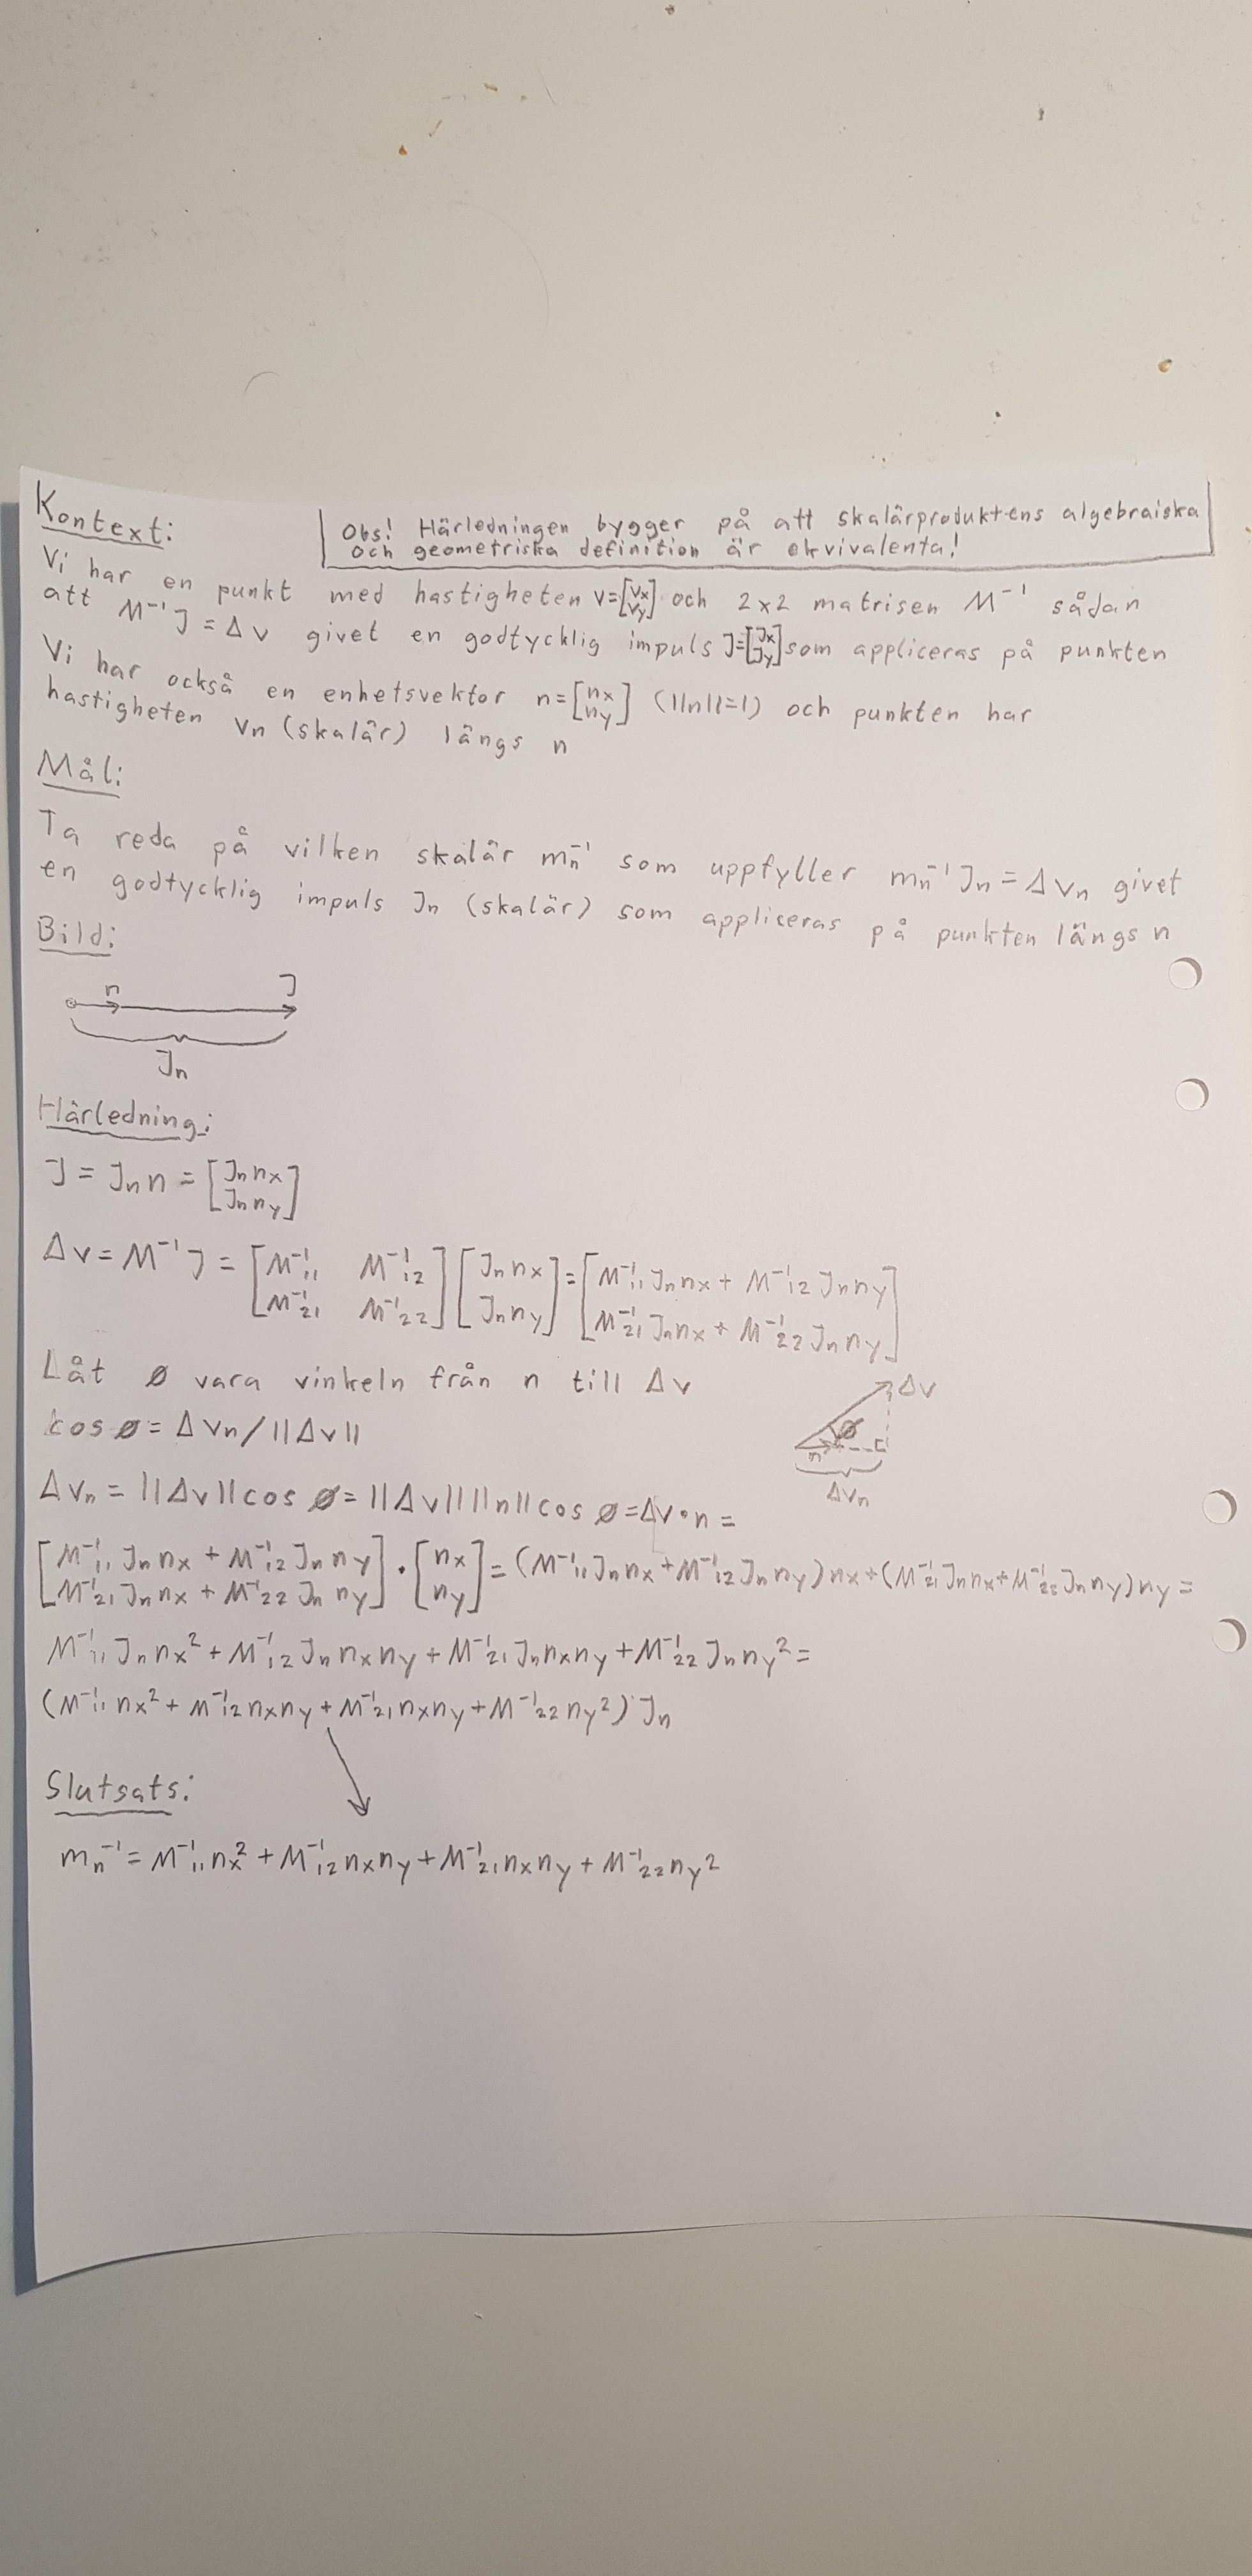 Kontext:
Obs! Härledningen bygger på att skalärproduktens algebraiska
och geometriska definition är ekvivalenta!
Vi har en punkt med hastigheten v=[vx vy] och 2x2 matrisen M⁻¹ sådan
att M⁻¹J = Δv givet en godtycklig impuls J=[Jx Jy] som appliceras på punkten
Vi har också en enhetsvektor n=[nx ny] (||n||=1) och punkten har
hastigheten vn (skalär) längs n
Mål:
Ta reda på vilken skalär mn⁻¹ som uppfyller mn⁻¹Jn = Δvn givet
en godtycklig impuls Jn (skalär) som appliceras på punkten längs n
Bild:
n J
Jn
Härledning:
J = Jn n = [Jn nx; Jn ny]
Δv = M⁻¹J = [M⁻¹11 M⁻¹12; M⁻¹21 M⁻¹22][Jn nx; Jn ny] = [M⁻¹11 Jn nx + M⁻¹12 Jn ny; M⁻¹21 Jn nx + M⁻¹22 Jn ny]
Låt ø vara vinkeln från n till Δv
cos ø = Δvn/||Δv||
Δv
ø
n
Δvn
Δvn = ||Δv|| cos ø = ||Δv|| ||n|| cos ø = Δv•n =
[M⁻¹11 Jn nx + M⁻¹12 Jn ny; M⁻¹21 Jn nx + M⁻¹22 Jn ny]•[nx; ny] = (M⁻¹11 Jn nx + M⁻¹12 Jn ny)nx + (M⁻¹21 Jn nx + M⁻¹22 Jn ny)ny =
M⁻¹11 Jn nx² + M⁻¹12 Jn nx ny + M⁻¹21 Jn nx ny + M⁻¹22 Jn ny² =
(M⁻¹11 nx² + M⁻¹12 nx ny + M⁻¹21 nx ny + M⁻¹22 ny²) Jn
Slutsats:
mn⁻¹ = M⁻¹11 nx² + M⁻¹12 nx ny + M⁻¹21 nx ny + M⁻¹22 ny²